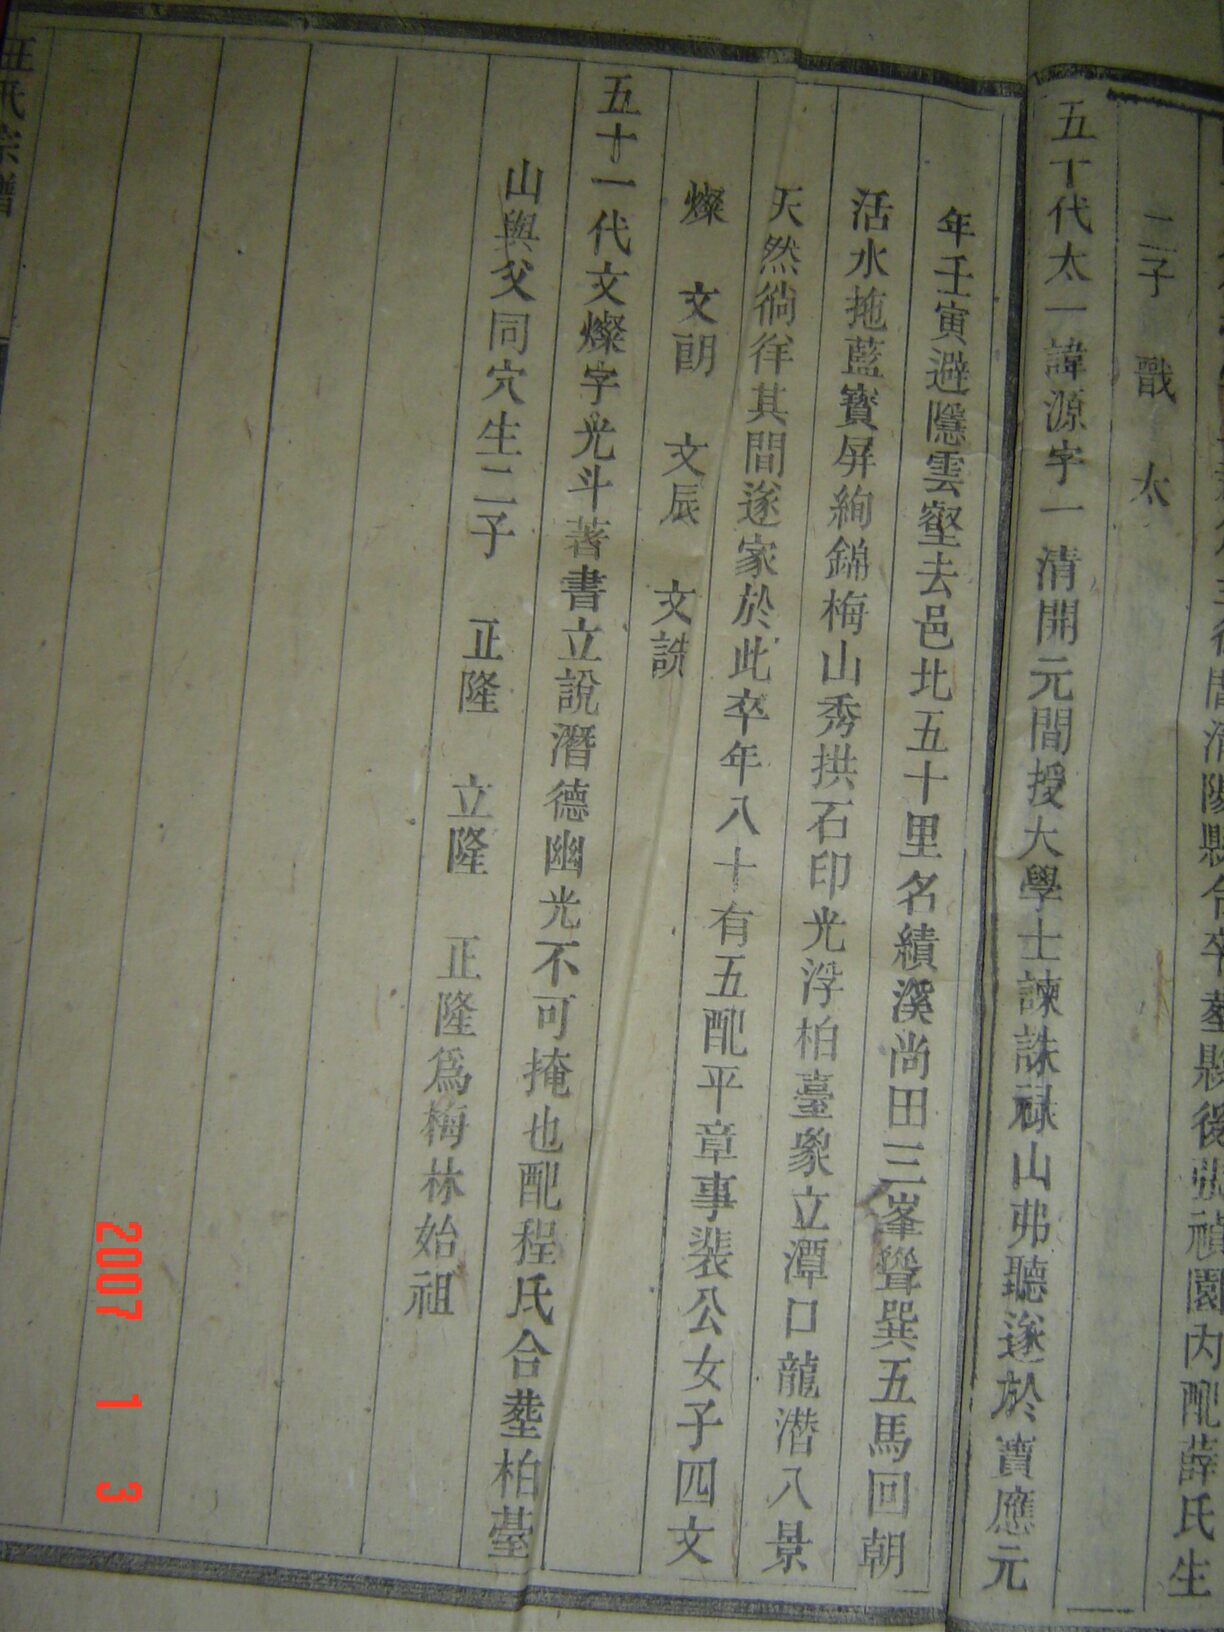 陽縣令卒塟縣後張禎園內配薛氏生
二子 戩 太
五十代太一諱源字一清開元間授大學士諫誅祿山弗聽遂於寶應元
年壬寅避隱雲壑去邑北五十里名績溪尚田三峯聳巽五馬回朝
活水拖藍寶屏絢錦梅山秀拱石印光浮柏臺象立潭口龍潜八景
天然徜徉其間遂家於此卒年八十有五配平章事裴公女子四文
燦 文朗 文辰 文詵
五十一代文燦字光斗著書立說潛德幽光不可掩也配程氏合塟柏臺
山與父同穴生二子 正隆 立隆 正隆為梅林始祖
氏宗譜
2007 1 3